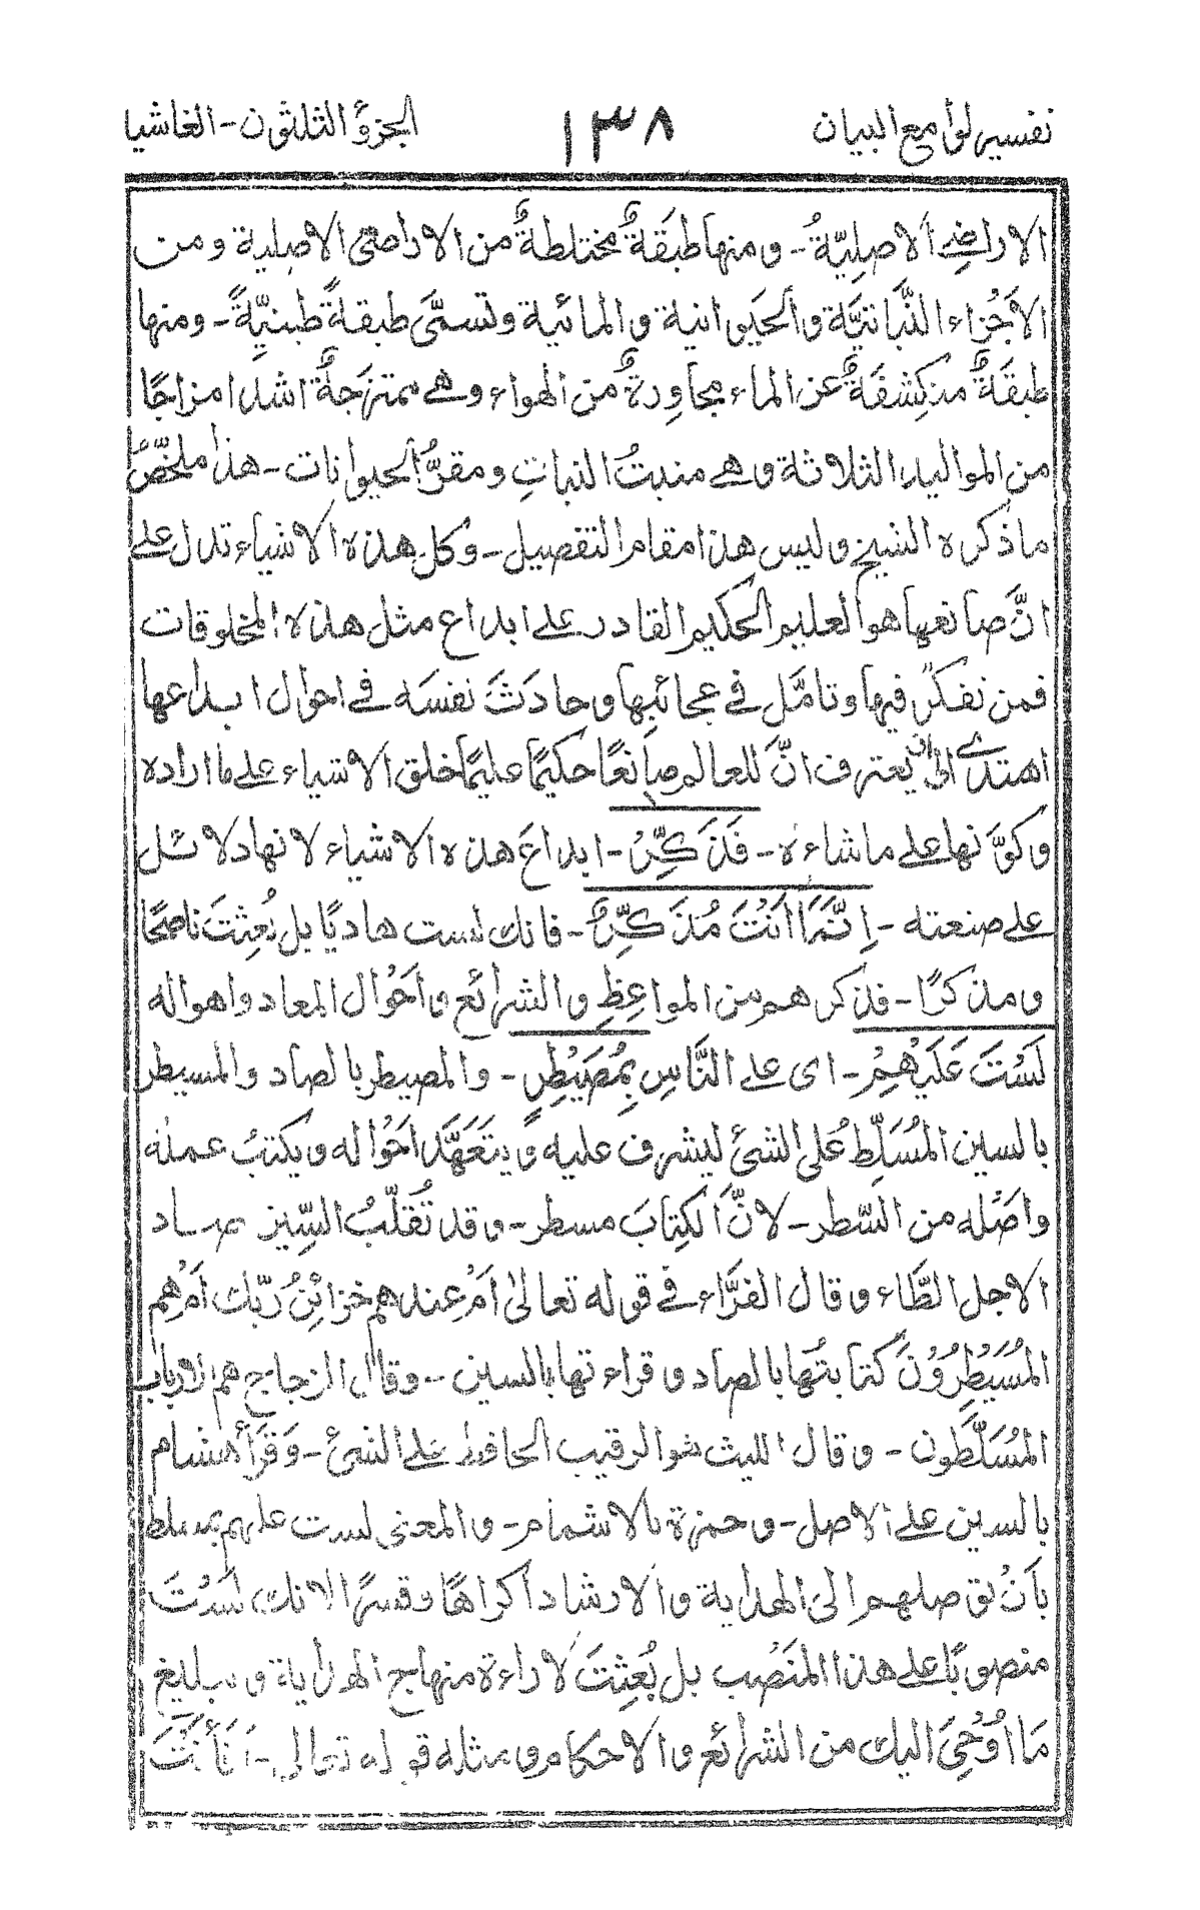 تفسير لوامع البيان ١٣٨ الجزؤ الثلثون - الغاشيا
الاراضى الاصليّةُ - ومنها طبقةٌ مختلطةٌ من الاراضى الاصلية ومن
الاَجْزاء النَّباتيَّة والحيوانية والمائية وتسمّى طبقةً طينيّةً - ومنها
طبقَةٌ منكشفَةٌ عن الماء مجاوِرةٌ من الهواء وهى ممتزجةٌ اشد امزاجًا
من المواليد الثلاثة وهى منبتُ النباتِ ومقرُّ الحيوانات - هذا ملخّصُ
ما ذكره الشيخ وليس هذا مقام التفصيل - وكل هذه الاشياء تدل على
انَّ صانعها هو العليم الحكيم القادر على ابداع مثل هذه المخلوقات
فمن تفكّر فيها وتامَّل فى عجائبها وحادَثَ نفسَه فى احوال ابداعها
اهتدى الى ان يعترف انَّ للعالم صانعًا حكيمًا عليمًا خلق الاشياء على ما اراده
وكوَّنها على ما شاءه - فَذَكِّرْ - ابداعَ هذه الاشياء لانها دلائل
على صنعته - اِنَّمَا اَنْتَ مُذَكِّرٌ - فانك لست هاديًا بل بُعِثتَ ناصحًا
ومذكرًا - فذكرهم من المواعِظِ والشرائع واَحْوال المعاد واهواله
لَسْتَ عَلَيْهِمْ - اى على النَّاسِ بِمُصَيْطِرٍ - والمصيطر بالصاد والمسيطر
بالسين المُسَلِّطُ على الشئ ليشرف عليه ويتَعَهَّدَ اَحْواله ويكتبُ عمله
واَصْله من السَّطر - لانَّ الكِتابَ مسطر - وقد تُقلّبُ السّين صاد
الاجل الطَّاء وقال الفرَّاء فى قوله تعالىٰ اَمْ عِندهم خزائِنُ ربّك اَمْ هم
المُسَيْطِرُوْنَ كتابتُها بالصاد وقراءتها بالسين - وقال الزجاج هم الارباب
المُسَلَّطون - وقال الليث هو الرقيب الحافظ على الشئ - وَقرَأ هشام
بالسين على الاصل - وحمزة بالاشمام - والمعنى لست عليهم بمسلط
بِاَنْ توصلهم الى الهداية والارشاد اكراهًا وقسرًا لانك لَسْتَ
منصوبًا على هذا المنَصْب بل بُعِثتَ لاراءة منهاج الهداية وتبليغ
مَا اُوْحِىَ اليك من الشرائع والاحكام ومثله قوله تعالى - اَفَاَنْتَ